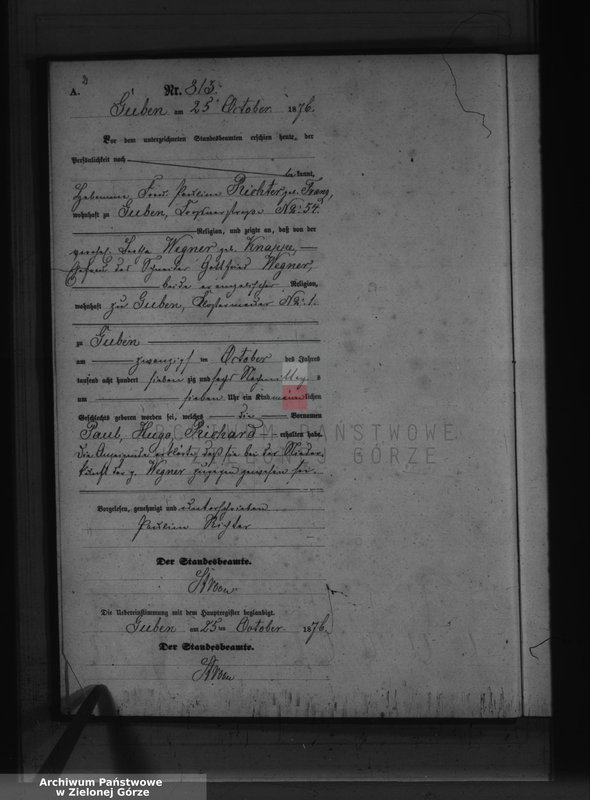 A. 3 Nr. 313.
Guben am 25. October 1876.
Vor dem unterzeichneten Standesbeamten erschien heute, der
Persönlichkeit nach
be kannt,
Hebamme Frau Paulin Richter geb. Franz,
wohnhaft zu Guben, No: 54.
Religion, und zeigte an, daß von der
Wegner geb. Knappe,
Ehefrau des Schneider Gottfried Wegner,
beide evangelischer Religion,
wohnhaft zu Guben, Klostermauer No: 1.
zu Guben
am zwanzigst en October des Jahres
tausend acht hundert sieben zig und sechs Nachmittag s
um sieben Uhr ein Kind männlichen
Geschlechts geboren worden sei, welches die Vornamen
Paul, Hugo Richard erhalten habe.
ARCHIWUM PAŃSTWOWE
Die Anzeigende erklärte, daß sie bei der Nieder,
W ZIELONEJ GÓRZE
kunft der p. Wegner zugegen gewesen sei.
Vorgelesen, genehmigt und unterschrieben
Paulin Richter
Der Standesbeamte.
Die Uebereinstimmung mit dem Hauptregister beglaubigt.
Guben am 25 ten October 1876.
Der Standesbeamte.
Archiwum Państwowe
w Zielonej Górze